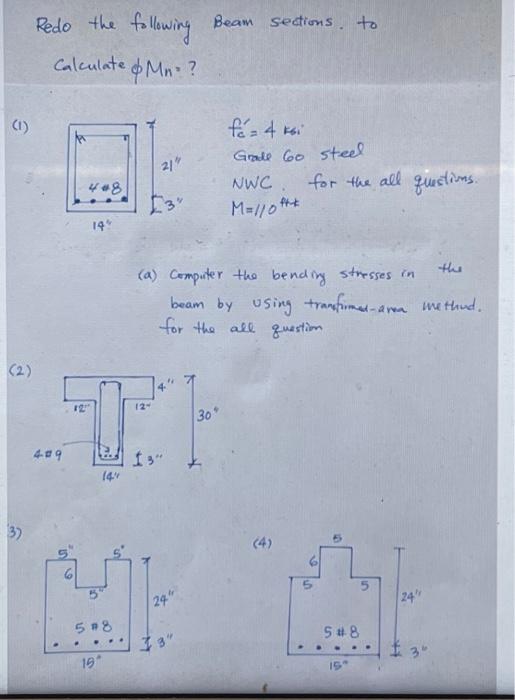 Redo the following Beam sections. to
Calculate ϕMn = ?
(1)
f'c = 4 ksi
Grade 60 steel
NWC. for the all questions.
M=110 ft-k
21"
4#8
3"
14"
(a) Computer the bending stresses in the
beam by using transformed-area method.
for the all question
(2)
4"
12"
12"
30"
4#9
3"
14"
3)
5"
5"
6
5"
24"
5#8
3"
15"
(4)
5
6
5
5
24"
5#8
3"
15"